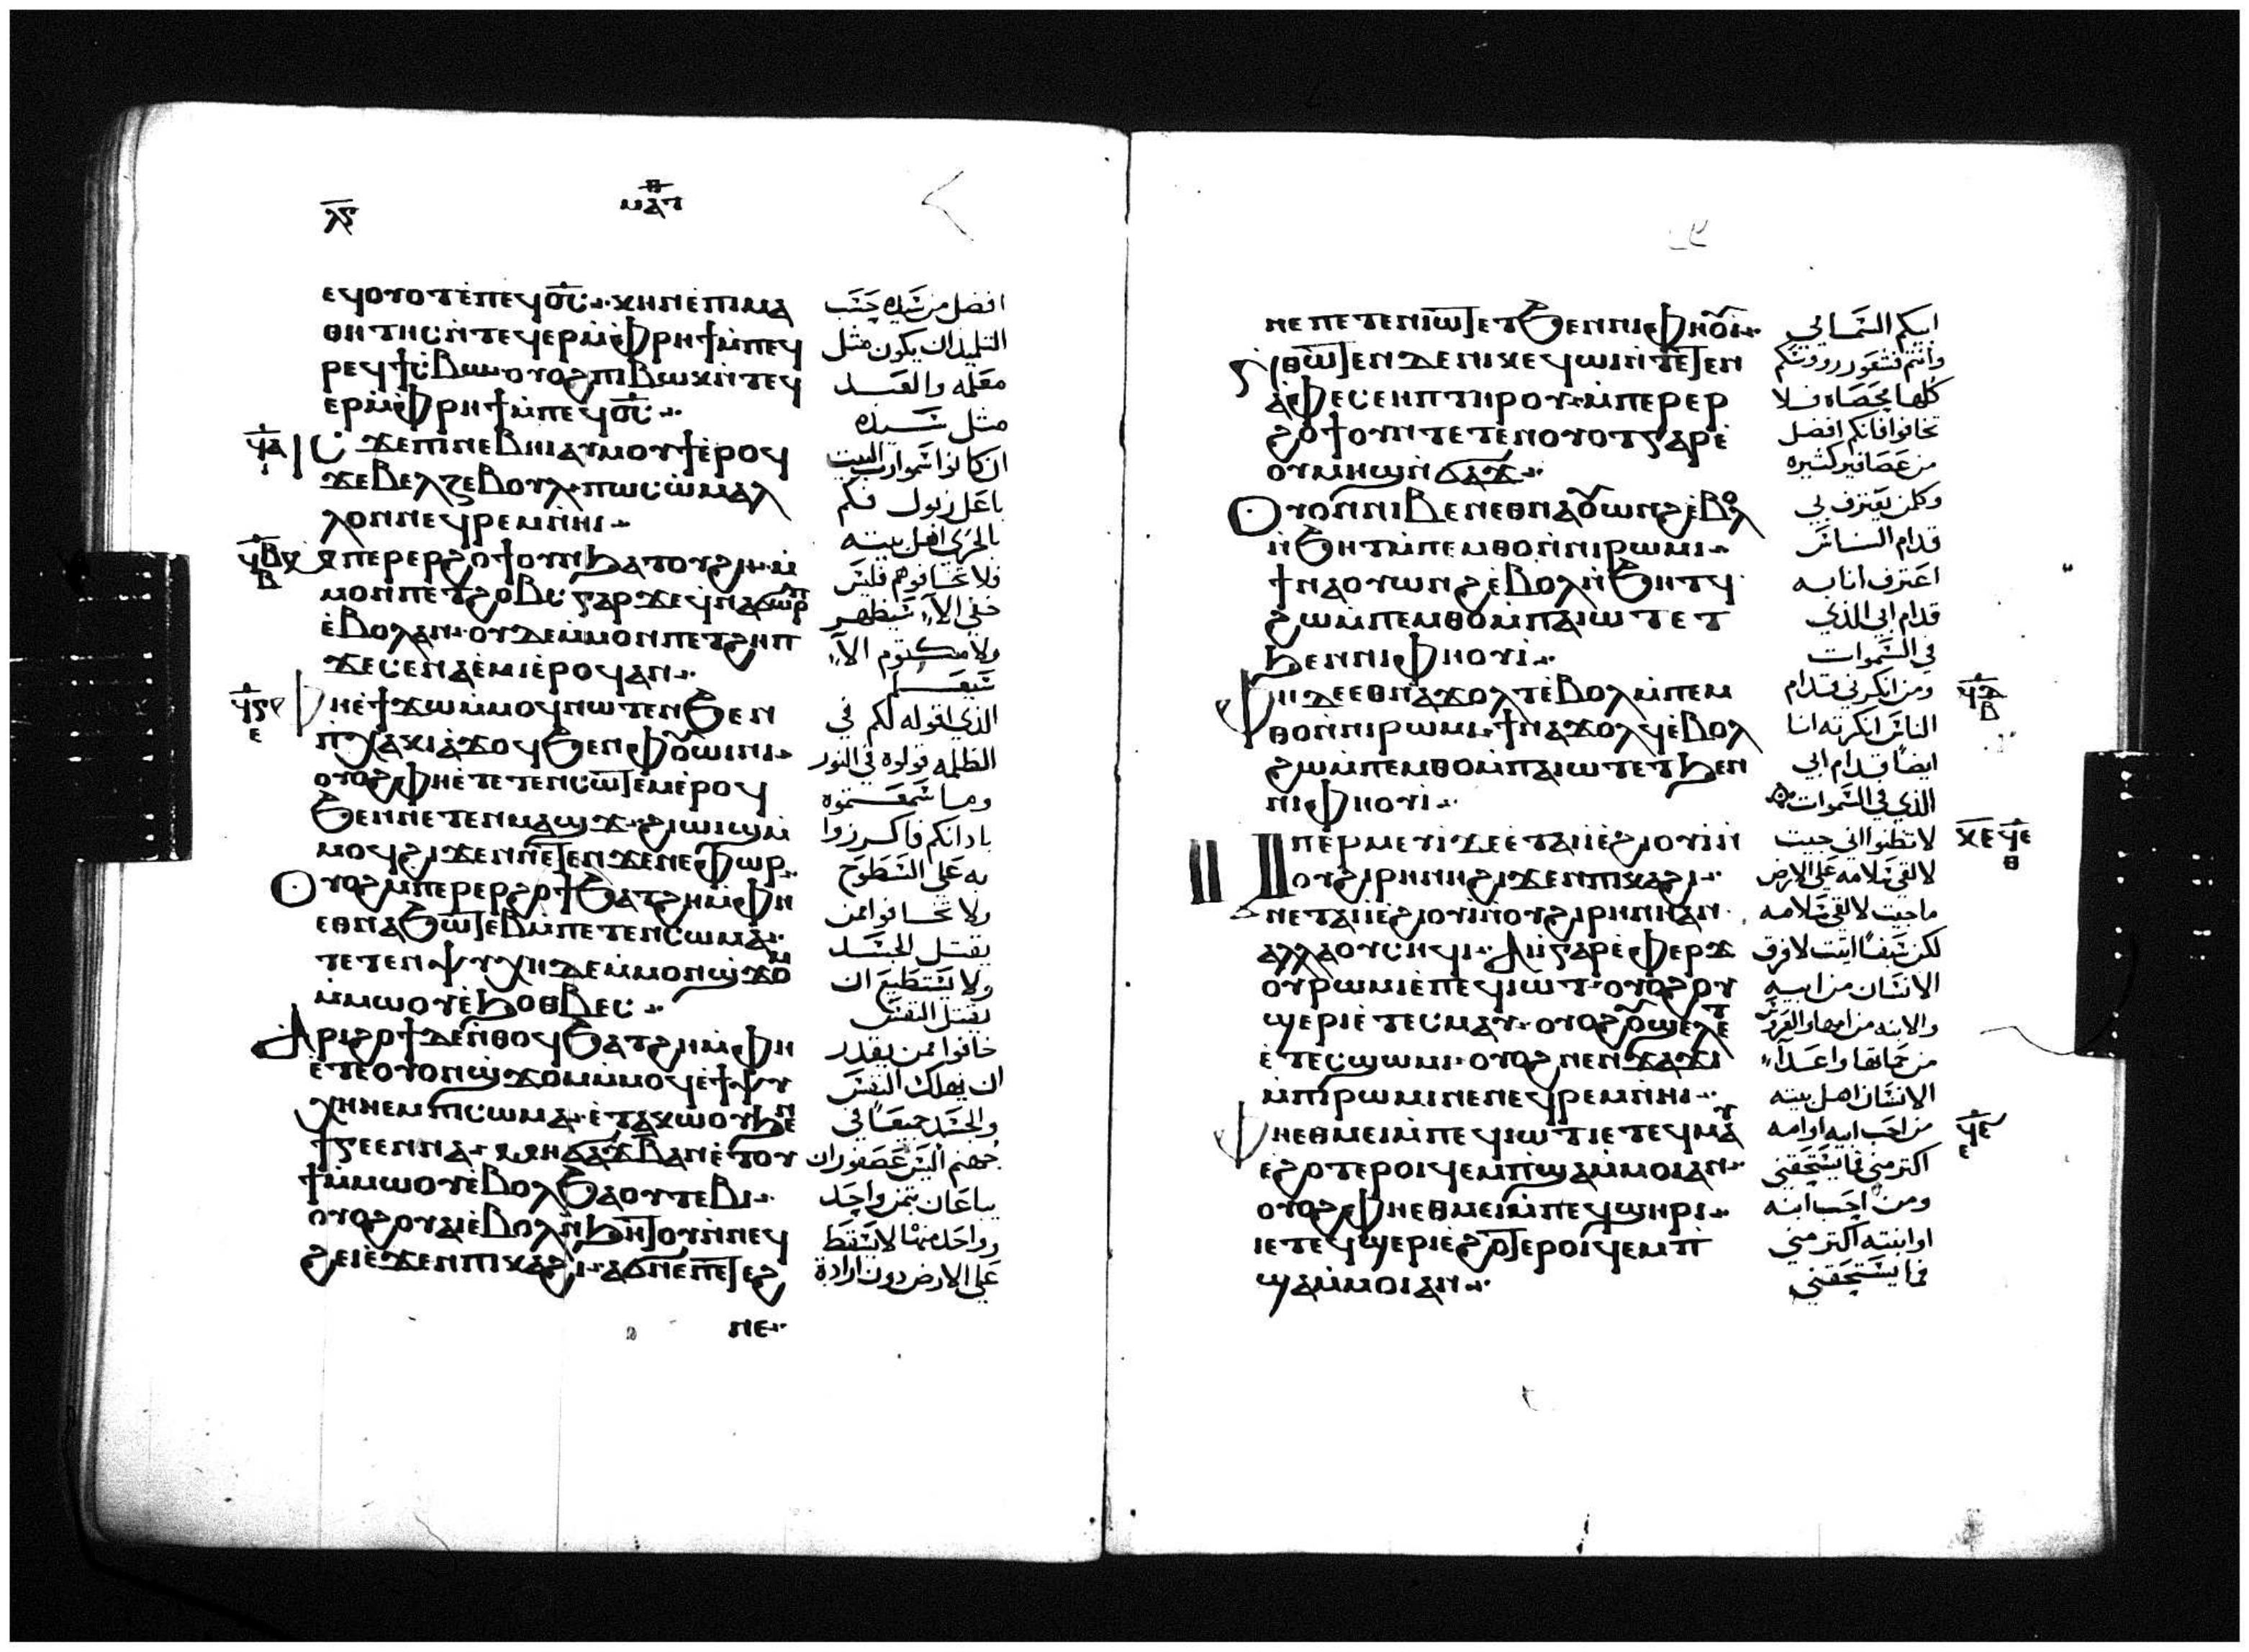 ⲗ̅ⲋ̅
ⲙⲁⲧ
ⲉϥⲟⲩⲟⲧ ⲉ̀ⲡⲉϥⲟ̅ⲥ̅ ⲭⲏ ⲛⲉ ⲡⲓⲙⲁ
ⲑⲏⲧⲏⲥ ⲛ̀ⲧⲉϥⲉⲣ ⲙ̀ⲫⲣⲏϯ ⲙ̀ⲡⲉϥ
ⲣⲉϥϯⲥ̀ⲃⲱ ⲟⲩⲟϩ ⲡⲓⲃⲱⲕ ⲛ̀ⲧⲉϥ
ⲉⲣ ⲙ̀ⲫⲣⲏϯ ⲙ̀ⲡⲉϥⲟ̅ⲥ̅
ⲓⲥϫⲉ ⲡⲓⲛⲉⲃⲏⲓ ⲁⲩⲙⲟⲩϯ ⲉ̀ⲣⲟϥ
ϫⲉ ⲃⲉⲗⲍⲉⲃⲟⲩⲗ ⲡⲱⲥ ⲱ̀ ⲙⲁⲗ
ⲗⲟⲛ ⲛⲉϥⲣⲉⲙⲛ̀ⲏⲓ
ⲙ̀ⲡⲉⲣⲉⲣϩⲟϯ ⲟⲩⲛ ϧⲁⲧⲟⲩϩⲏ ⲙ̀
ⲙⲟⲛ ⲡⲉⲧϩⲟⲃⲥ ⲅⲁⲣ ϫⲉ ϥⲛⲁϭⲱⲣⲡ
ⲉ̀ⲃⲟⲗ ⲁⲛ ⲟⲩⲇⲉ ⲙ̀ⲙⲟⲛ ⲡⲉⲧϩⲏⲡ
ϫⲉ ⲥⲉⲛⲁⲉ̀ⲙⲓ ⲉ̀ⲣⲟϥ ⲁⲛ
ⲫⲏ ⲉ̀ϯϫⲱ ⲙ̀ⲙⲟϥ ⲛⲱⲧⲉⲛ ϧⲉⲛ
ⲡⲭⲁⲕⲓ ⲁ̀ϫⲟϥ ϧⲉⲛ ⲫⲟⲩⲱⲓⲛⲓ
ⲟⲩⲟϩ ⲫⲏ ⲉ̀ⲧⲉⲧⲉⲛⲥⲱⲧⲉⲙ ⲉ̀ⲣⲟϥ
ϧⲉⲛ ⲛⲉⲧⲉⲛⲙⲁϣϫ ϩⲓⲱⲓϣ ⲙ̀
ⲙⲟϥ ϩⲓϫⲉⲛ ⲛⲉⲧⲉⲛϫⲉⲛⲉⲫⲱⲣ
ⲟⲩⲟϩ ⲙ̀ⲡⲉⲣⲉⲣϩⲟϯ ϧⲁⲧϩⲏ ⲙ̀ⲫⲏ
ⲉⲑⲛⲁϧⲱⲧⲉⲃ ⲙ̀ⲡⲉⲧⲉⲛⲥⲱⲙⲁ
ⲧⲉⲧⲉⲛⲯⲩⲭⲏ ⲇⲉ ⲙ̀ⲙⲟⲛ ϣϫⲟⲙ
ⲙ̀ⲙⲱⲟⲩ ⲉ̀ϧⲟⲑⲃⲉⲥ
ⲁⲣⲓϩⲟϯ ⲇⲉ ⲛ̀ⲑⲟϥ ϧⲁⲧϩⲏ ⲙ̀ⲫⲏ
ⲉ̀ⲧⲉ ⲟⲩⲟⲛ ϣϫⲟⲙ ⲙ̀ⲙⲟϥ ⲉ̀ϯⲯⲩ
ⲭⲏ ⲛⲉⲙ ⲡⲓⲥⲱⲙⲁ ⲉ̀ⲧⲁⲕⲱⲟⲩ ϧⲉⲛ
ϯⲅⲉⲉⲛⲛⲁ ⲙⲏ ϭⲁϫ ⲃ̅ ⲁⲛ ⲉ̀ⲧⲟⲩ
ϯ ⲙ̀ⲙⲱⲟⲩ ⲉ̀ⲃⲟⲗ ϧⲁ ⲟⲩⲧⲉⲃⲓ
ⲟⲩⲟϩ ⲟⲩⲁⲓ ⲉ̀ⲃⲟⲗ ⲛ̀ϧⲏⲧⲟⲩ ⲛ̀ⲛⲉϥ
ϩⲉⲓ ⲉ̀ϫⲉⲛ ⲡⲓⲕⲁϩⲓ ⲁϭⲛⲉ ⲡⲉⲧⲉϩ
ⲛⲉ
افضل من سيده حسب
التلميذ ان يكون مثل
معلمه والعبد
مثل سيده
ان كانوا سموا رب البيت
باعل زبول فكم
بالحرى اهل بيته
فلا تخافوهم فليس
خفى الا سيظهر
ولا مكتوم الا
سيعلم
الذي اقوله لكم في
الظلمه قولوه في النور
وما سمعتموه
باذانكم فاكرزوا
به على السطوح
ولا تخافوا ممن
يقتل الجسد
ولا يستطيع ان
يقتل النفس
خافوا ممن يقدر
ان يهلك النفس
والجسد جميعا في
جهنم اليس عصفوران
يباعان بثمن واحد
وواحد منهما لا يسقط
على الارض دون ارادة
ⲛⲉ ⲡⲉⲧⲉⲛⲓⲱⲧ ⲉⲧϧⲉⲛ ⲛⲓⲫⲏⲟⲩⲓ
ⲛ̀ⲑⲱⲧⲉⲛ ⲇⲉ ⲛⲓⲕⲉϥⲱⲓ ⲛ̀ⲧⲉⲧⲉⲛ
ⲁ̀ⲫⲉ ⲥⲉⲏⲡ ⲧⲏⲣⲟⲩ ⲙ̀ⲡⲉⲣⲉⲣ
ϩⲟϯ ⲟⲩⲛ ⲧⲉⲧⲉⲛⲟⲩⲟⲧ ⲅⲁⲣ ⲉ̀
ⲟⲩⲙⲏϣ ⲛ̀ϭⲁϫ
ⲟⲩⲟⲛ ⲛⲓⲃⲉⲛ ⲉⲑⲛⲁⲟⲩⲱⲛϩ ⲉ̀ⲃⲟⲗ
ⲛ̀ϧⲏⲧ ⲙ̀ⲡⲉⲙⲑⲟ ⲛ̀ⲛⲓⲣⲱⲙⲓ
ϯⲛⲁⲟⲩⲱⲛϩ ⲉ̀ⲃⲟⲗ ⲛ̀ϧⲏⲧϥ
ϩⲱ ⲙ̀ⲡⲉⲙⲑⲟ ⲙ̀ⲡⲁⲓⲱⲧ ⲉⲧ
ϧⲉⲛ ⲛⲓⲫⲏⲟⲩⲓ
ⲫⲏ ⲇⲉ ⲉⲑⲛⲁϫⲟⲗⲧ ⲉ̀ⲃⲟⲗ ⲙ̀ⲡⲉⲙ
ⲑⲟ ⲛ̀ⲛⲓⲣⲱⲙⲓ ϯⲛⲁϫⲟⲗϥ ⲉ̀ⲃⲟⲗ
ϩⲱ ⲙ̀ⲡⲉⲙⲑⲟ ⲙ̀ⲡⲁⲓⲱⲧ ⲉⲧϧⲉⲛ
ⲛⲓⲫⲏⲟⲩⲓ
ⲙ̀ⲡⲉⲣⲙⲉⲩⲓ ϫⲉ ⲉ̀ⲧⲁⲓⲓ̀ ⲉ̀ϩⲓⲟⲩⲓ ⲛ̀
ⲟⲩϩⲓⲣⲏⲛⲏ ϩⲓϫⲉⲛ ⲡⲓⲕⲁϩⲓ
ⲛⲉⲧⲁⲓⲓ̀ ⲉ̀ϩⲓⲟⲩⲓ ⲛ̀ⲟⲩϩⲓⲣⲏⲛⲏ ⲁⲛ
ⲁⲗⲗⲁ ⲟⲩⲥⲏϥⲓ ⲁⲓⲓ̀ ⲅⲁⲣ ⲉ̀ⲫⲉⲣϫ
ⲟⲩⲣⲱⲙⲓ ⲉ̀ⲡⲉϥⲓⲱⲧ ⲟⲩⲟϩ ⲟⲩ
ϣⲉⲣⲓ ⲉ̀ⲧⲉⲥⲙⲁⲩ ⲟⲩⲟϩ ⲟⲩϣⲉⲗⲉⲧ
ⲉ̀ⲧⲉⲥϣⲱⲙⲓ ⲟⲩⲟϩ ⲛⲉⲛϫⲁϫⲓ
ⲙ̀ⲡⲓⲣⲱⲙⲓ ⲛⲉ ⲛⲉϥⲣⲉⲙⲛ̀ⲏⲓ
ⲫⲏ ⲉⲑⲙⲉⲓ ⲙ̀ⲡⲉϥⲓⲱⲧ ⲓⲉ ⲧⲉϥⲙⲁⲩ
ⲉ̀ϩⲟⲧⲉⲣⲟⲓ ϥⲉⲙⲡϣⲁ ⲙ̀ⲙⲟⲓ ⲁⲛ
ⲟⲩⲟϩ ⲫⲏ ⲉⲑⲙⲉⲓ ⲙ̀ⲡⲉϥϣⲏⲣⲓ
ⲓⲉ ⲧⲉϥϣⲉⲣⲓ ⲉ̀ϩⲟⲧⲉⲣⲟⲓ ϥⲉⲙⲡ
ϣⲁ ⲙ̀ⲙⲟⲓ ⲁⲛ
ابيكم السمائي
وانتم فشعور رووسكم
كلها محصاه فلا
تخافوا فانكم افضل
من عصافير كثيره
وكل من يعترف بي
قدام الناس
اعترف انا به
قدام ابي الذي
في السموات
ومن انكرني قدام
الناس انكرته انا
ايضا قدام ابي
الذي في السموات
لا تظنوا انى جيت
لالقى سلامه على الارض
ما جيت لالقى سلامه
لكن سيفا اتيت لافرق
الانسان من ابيه
والابنه من امها والعروس
من حماتها واعدآء
الانسان اهل بيته
من احب ابيه او امه
اكتر مني فما يستحقني
ومن احب ابنه
او ابنته اكتر مني
فما يستحقني